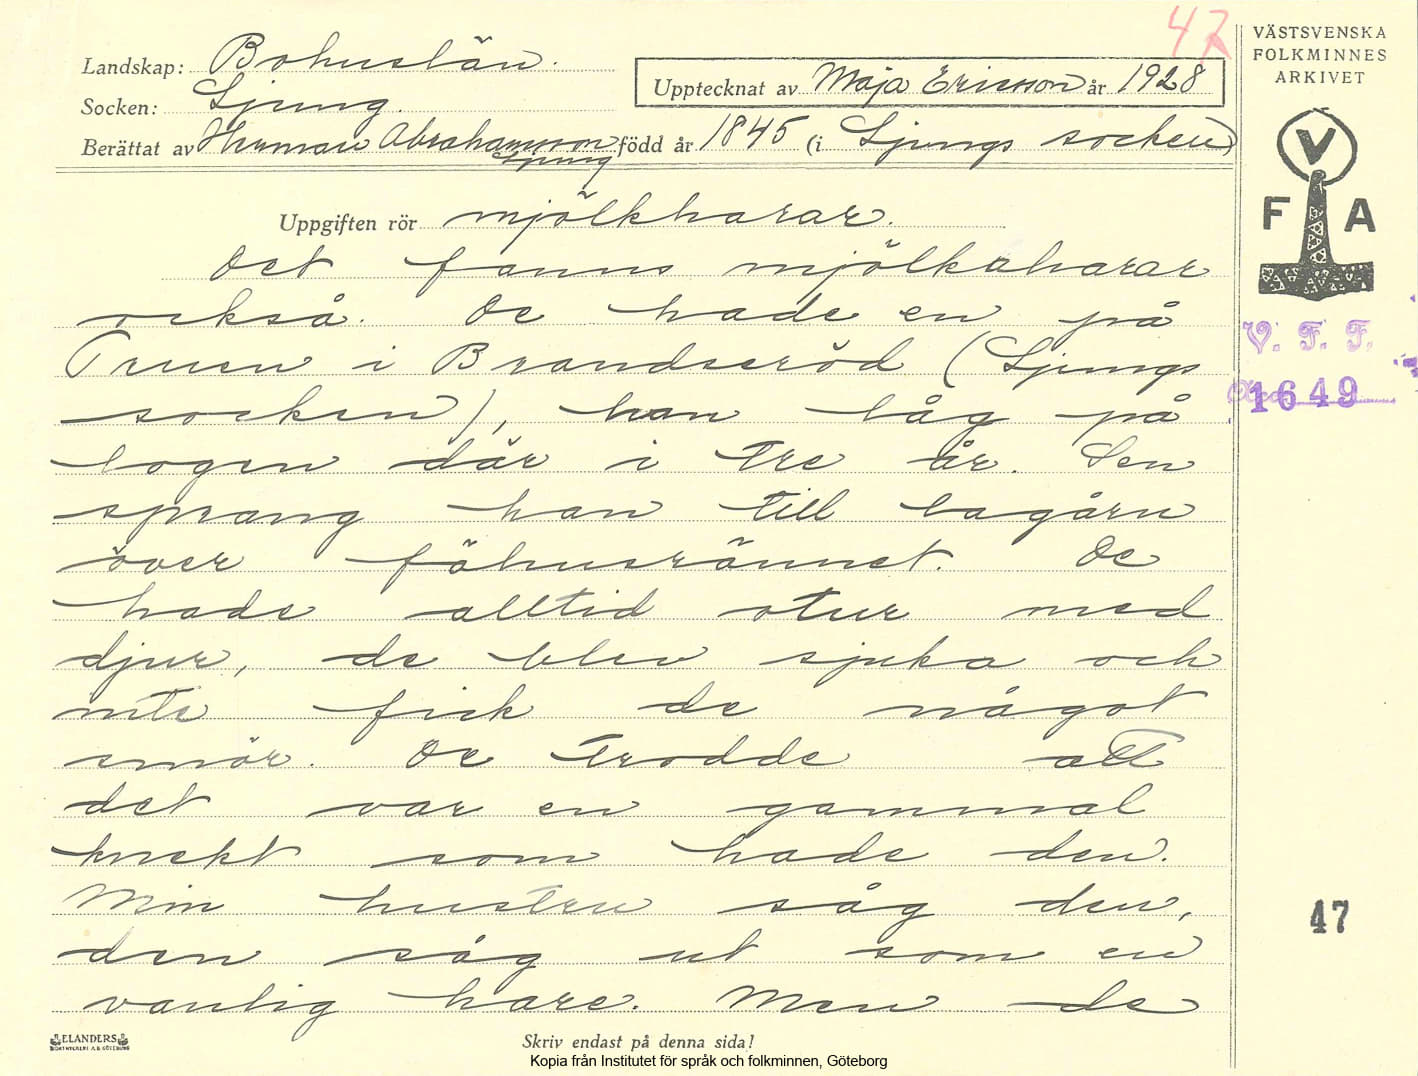 47
VÄSTSVENSKA
FOLKMINNES
ARKIVET
Landskap: Bohuslän.
Socken: Ljung.
Upptecknat av Maja Ericsson år 1928
Berättat av Herman Abrahamsson född år 1845 (i Ljungs socken)
Ljung
V
F A
Uppgiften rör mjölkharar.
Det fanns mjölkaharar
också. De hade en på
Truen i Brandseröd (Ljungs
socken), han låg på
logen där i tre år. Sen
sprang han till lagårn
över föhusrännet. De
hade alltid otur med
djur, de blev sjuka och
inte fick de något
smör. De trodde att
det var en gammal
knekt som hade den.
Min hustru såg den,
den såg ut som en
vanlig hare. Men de
V. F. F.
1649
47
ELANDERS
BOKTRYCKERI A.B. GÖTEBORG
Skriv endast på denna sida!
Kopia från Institutet för språk och folkminnen, Göteborg